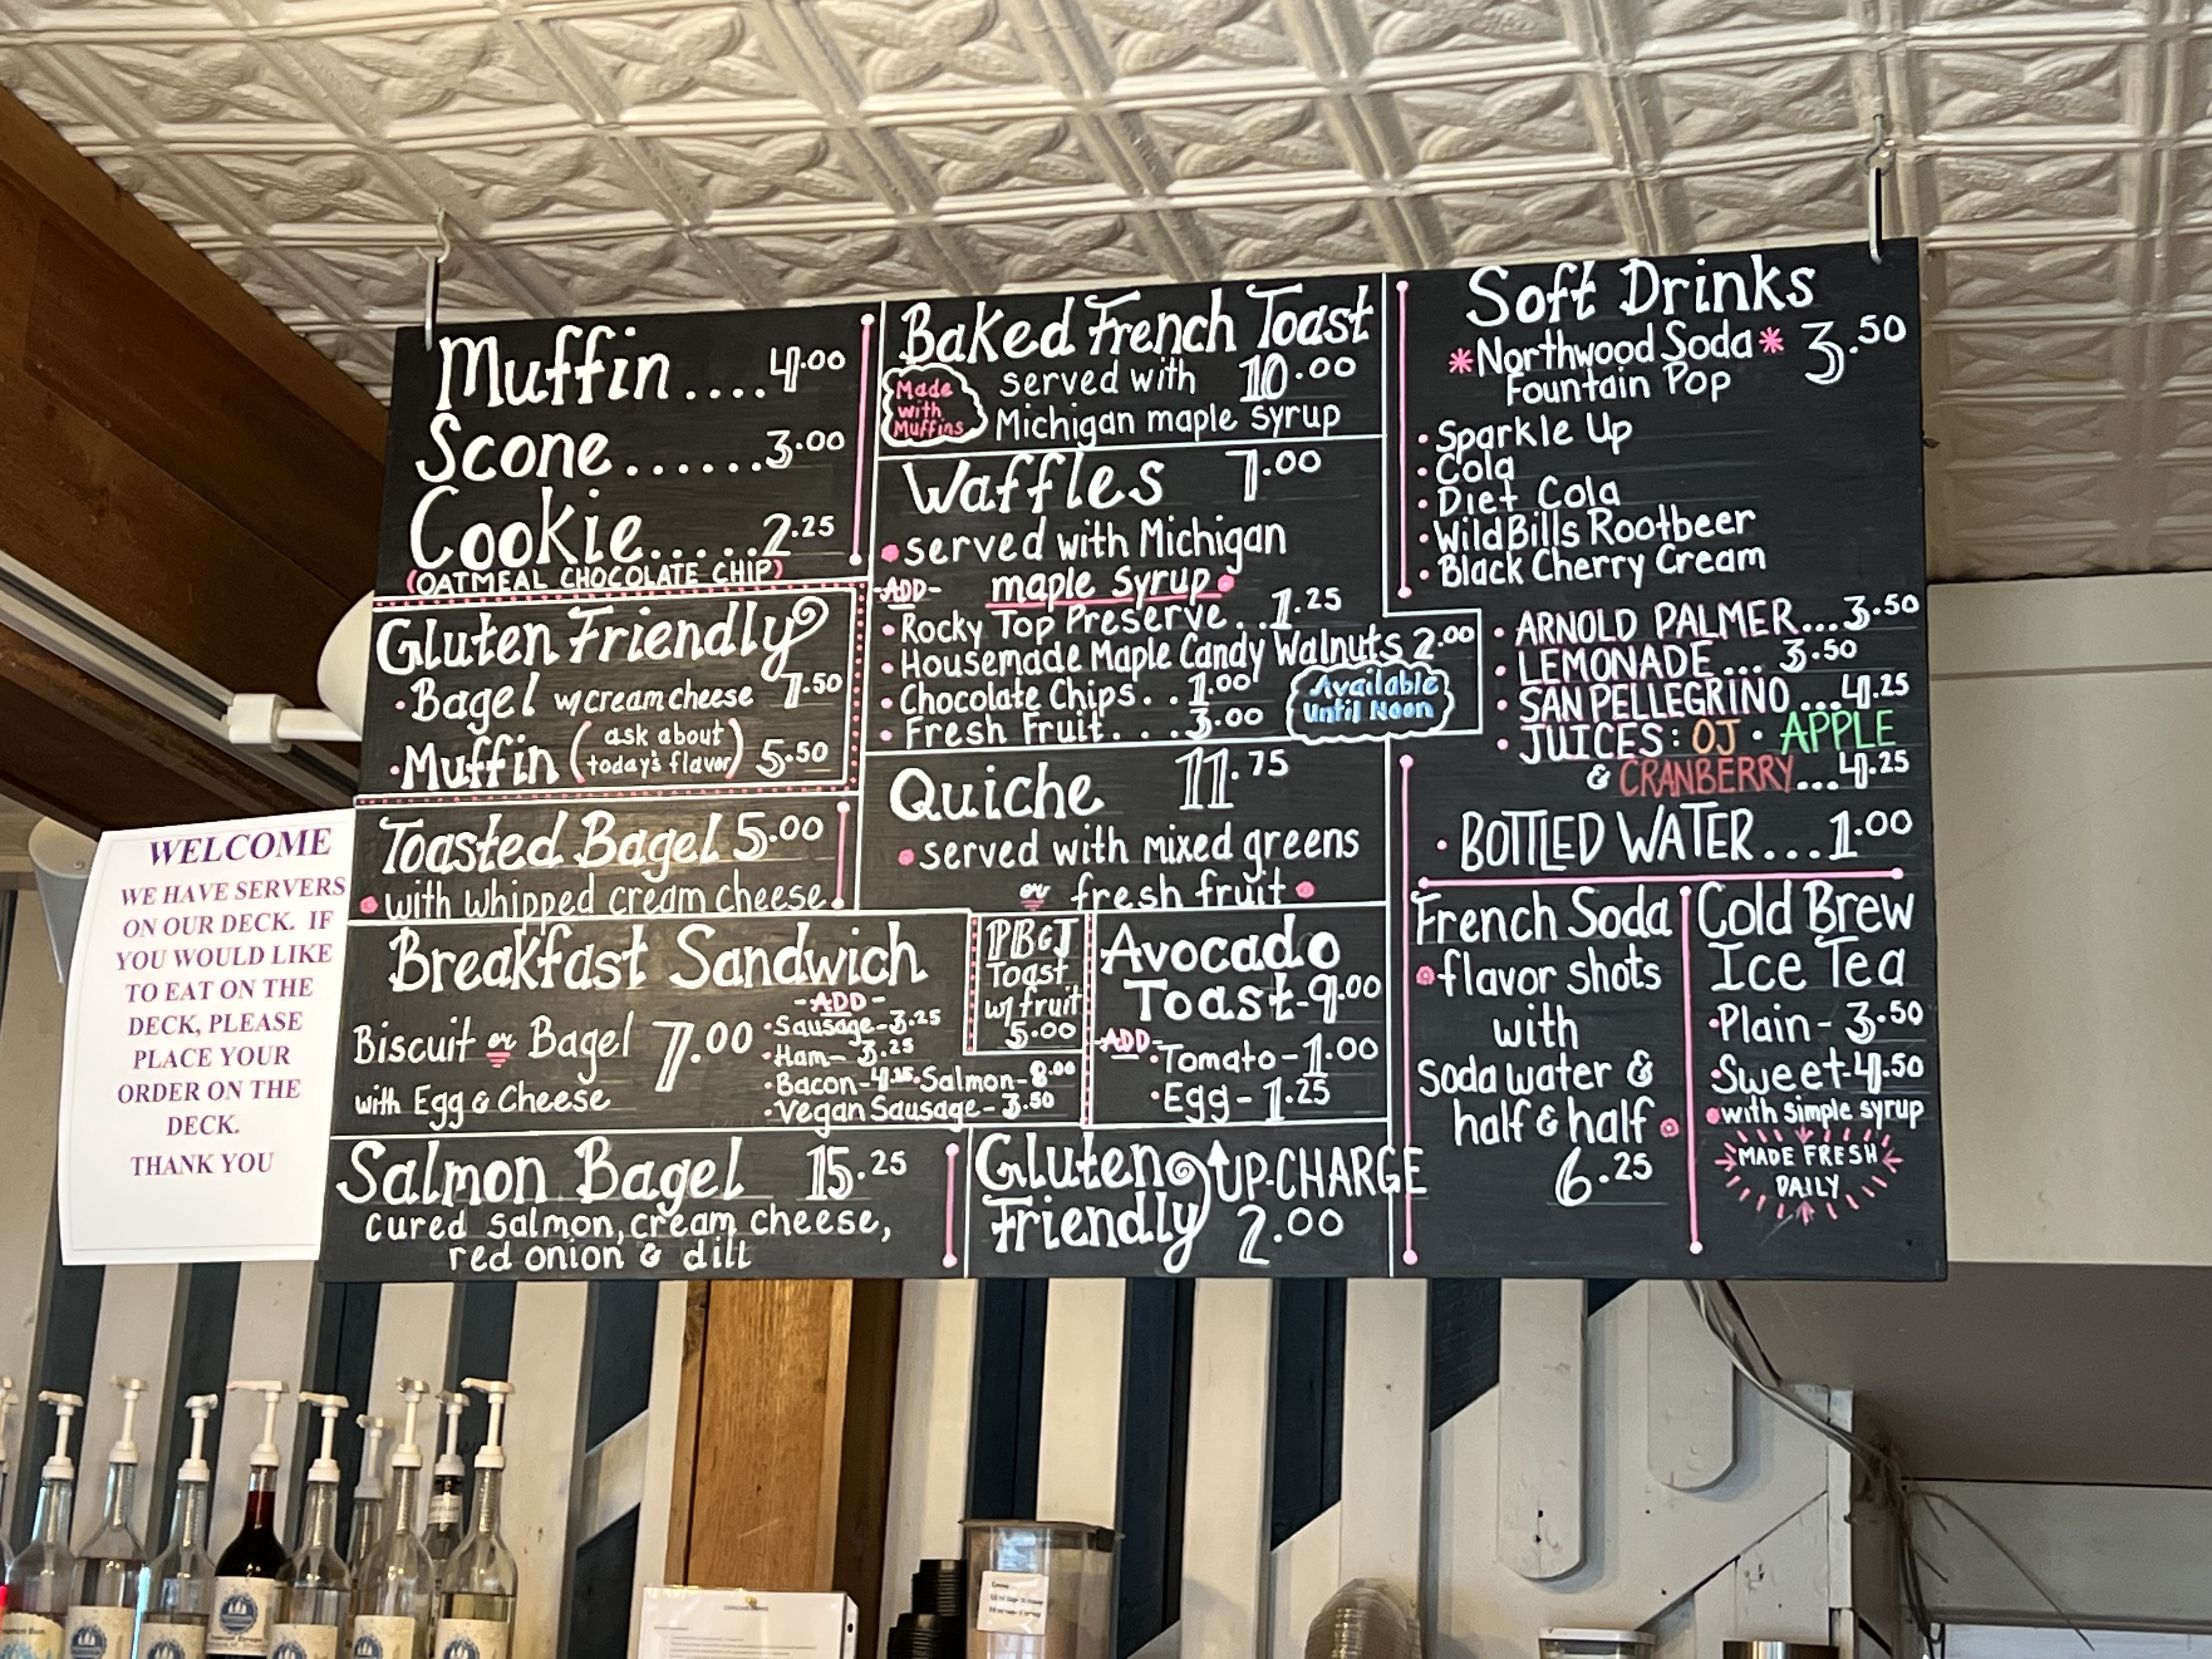 Muffin....4.00
Scone......3.00
Cookie.....2.25
(OATMEAL CHOCOLATE CHIP)
Gluten Friendly
•Bagel w/ cream cheese 7.50
•Muffin (ask about today's flavor) 5.50
Toasted Bagel 5.00
with whipped cream cheese
Baked French Toast
Made with Muffins
served with 10.00
Michigan maple syrup
Waffles 7.00
served with Michigan
maple syrup
-ADD-
•Rocky Top Preserve..1.25
•Housemade Maple Candy Walnuts 2.00
•Chocolate Chips..1.00
•Fresh Fruit...3.00
Available
Until Noon
Quiche 11.75
served with mixed greens
or fresh fruit
Breakfast Sandwich
Biscuit or Bagel 7.00
with Egg & Cheese
-ADD-
•Sausage-3.25
•Ham-3.25
•Bacon-4.25 •Salmon-8.00
•Vegan Sausage-3.50
PB&J
Toast
w/ fruit
5.00
Avocado
Toast-9.00
ADD-
•Tomato-1.00
•Egg-1.25
Salmon Bagel 15.25
cured salmon, cream cheese,
red onion & dill
Gluten Friendly
UP-CHARGE
2.00
Soft Drinks
*Northwood Soda* 3.50
Fountain Pop
•Sparkle Up
•Cola
•Diet Cola
•WildBills Rootbeer
•Black Cherry Cream
•ARNOLD PALMER...3.50
•LEMONADE...3.50
•SAN PELLEGRINO...4.25
•JUICES: OJ • APPLE
& CRANBERRY...4.25
•BOTTLED WATER...1.00
French Soda
flavor shots
with
soda water &
half & half
6.25
Cold Brew
Ice Tea
•Plain-3.50
•Sweet-4.50
with simple syrup
MADE FRESH
DAILY
WELCOME
WE HAVE SERVERS
ON OUR DECK. IF
YOU WOULD LIKE
TO EAT ON THE
DECK, PLEASE
PLACE YOUR
ORDER ON THE
DECK.
THANK YOU